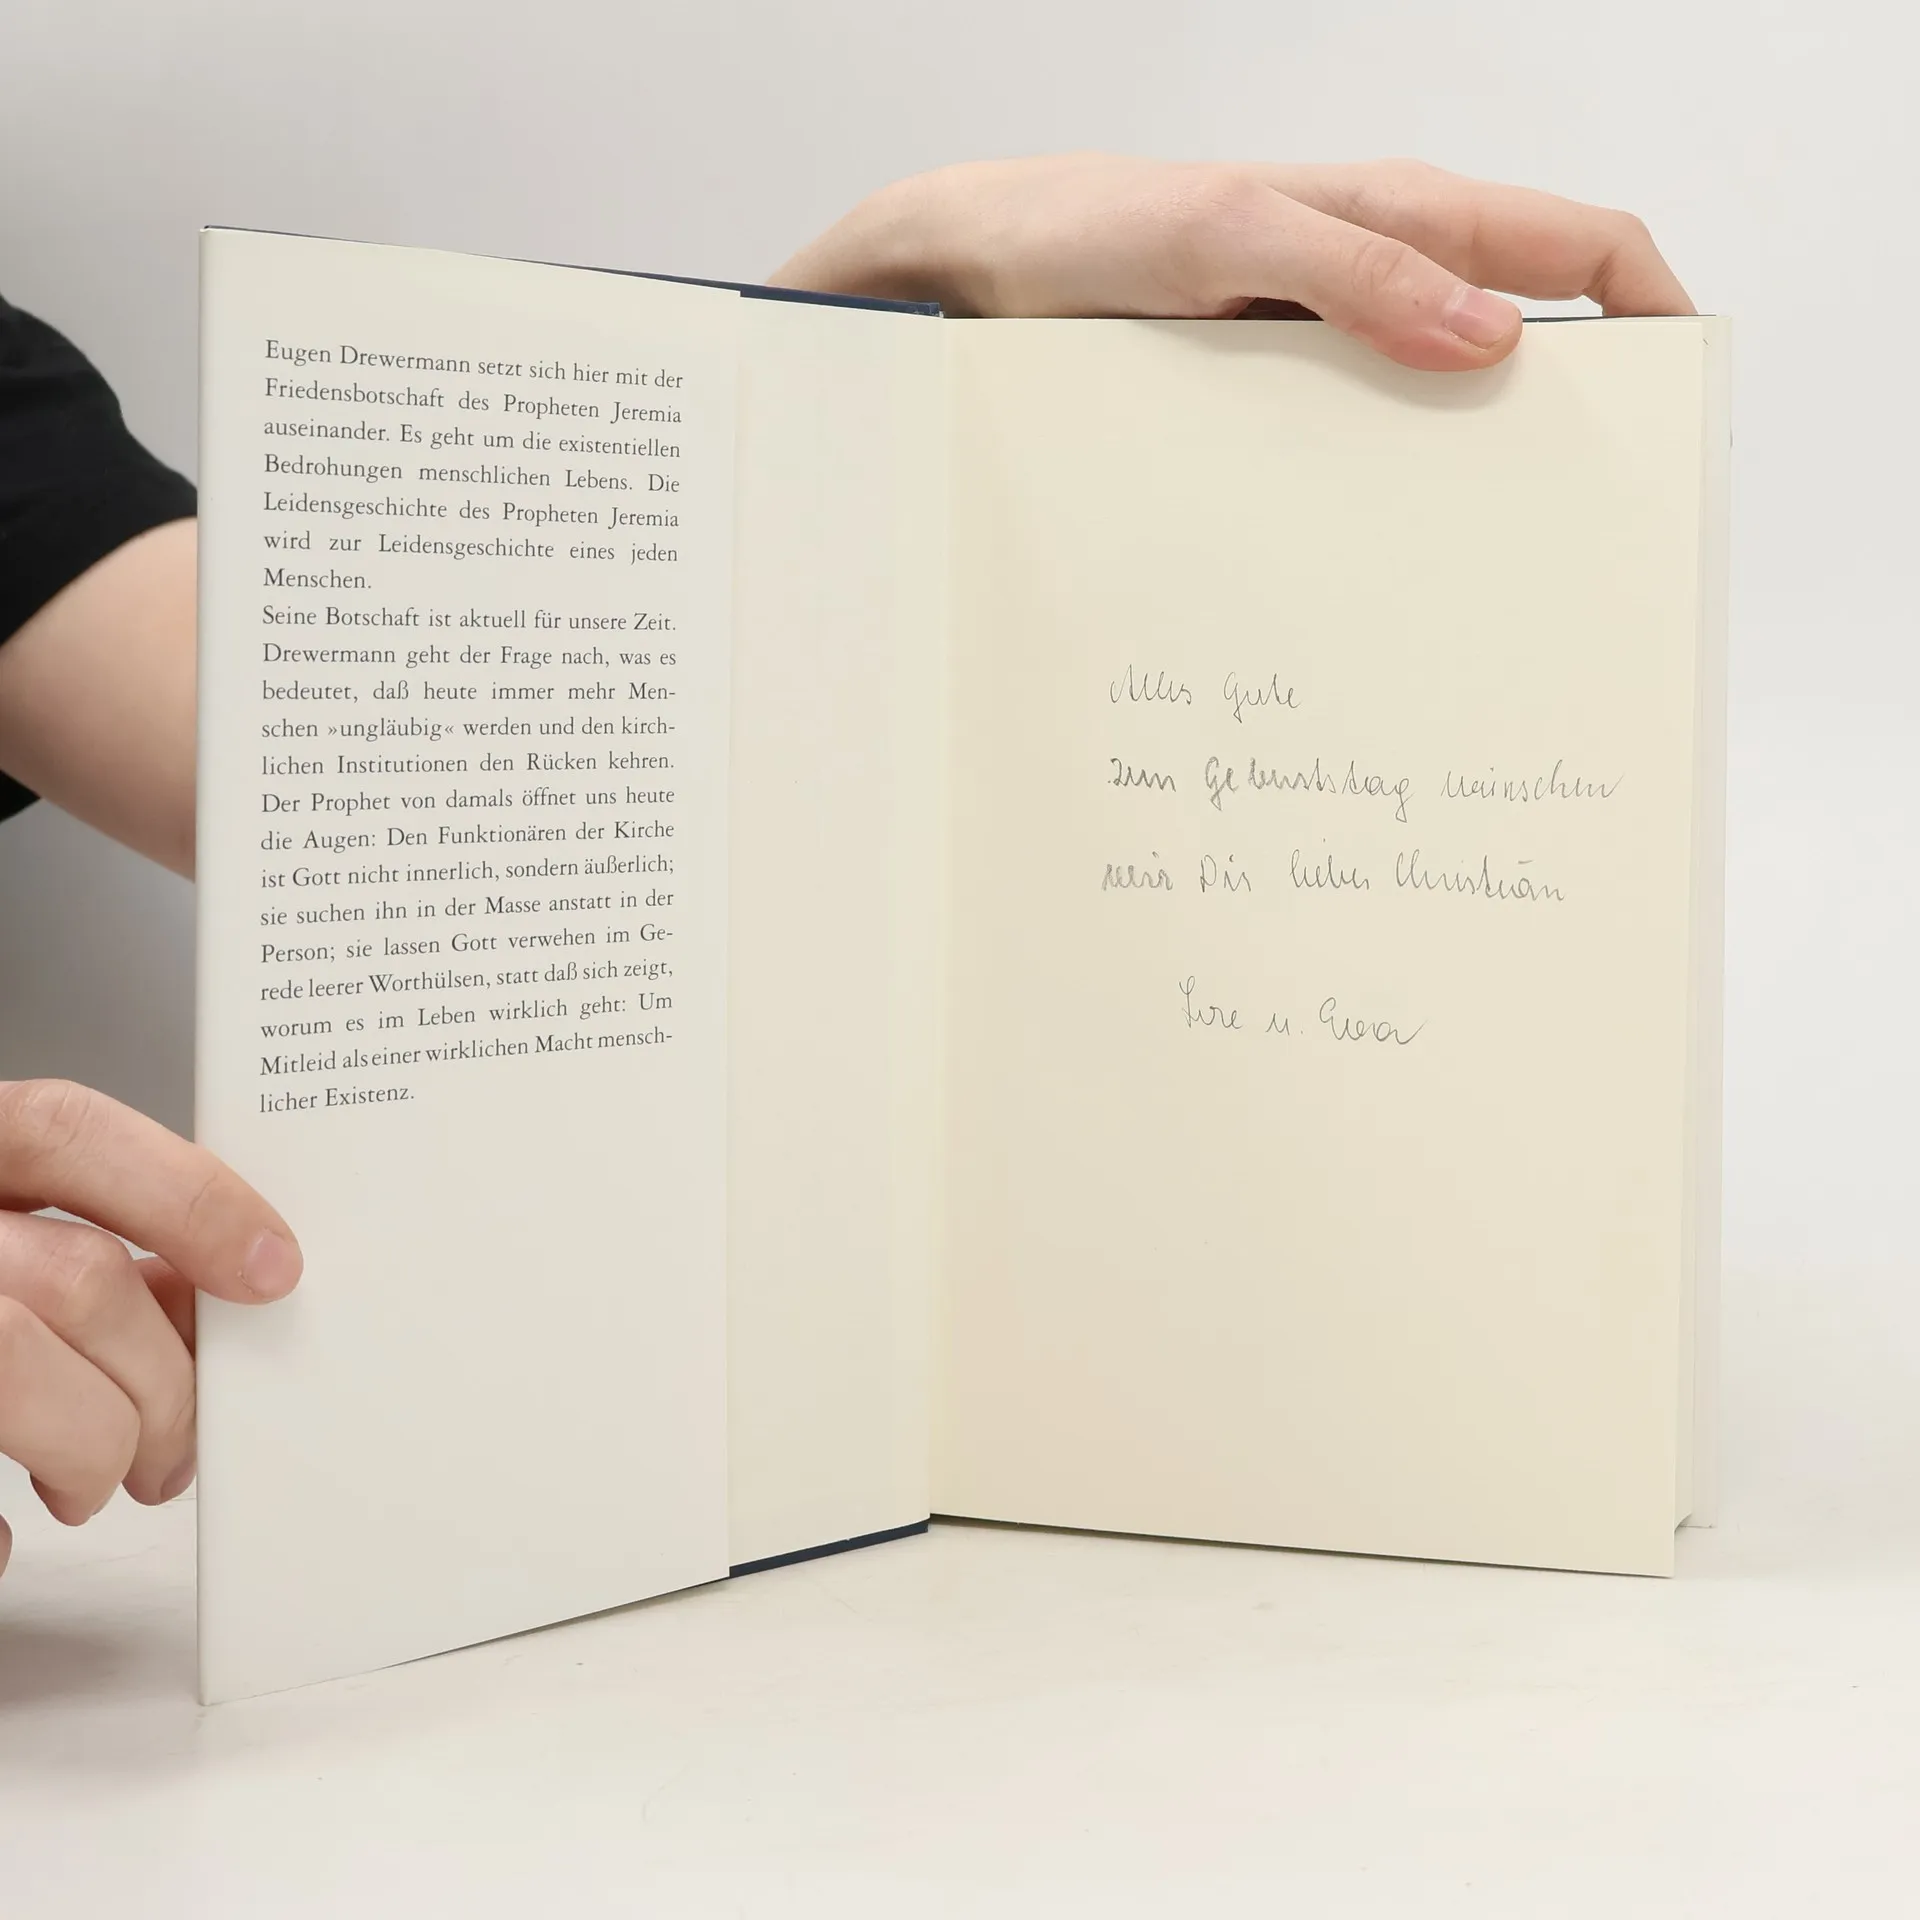 Eugen Drewermann setzt sich hier mit der
Friedensbotschaft des Propheten Jeremia
auseinander. Es geht um die existentiellen
Bedrohungen menschlichen Lebens. Die
Leidensgeschichte des Propheten Jeremia
wird zur Leidensgeschichte eines jeden
Menschen.
Seine Botschaft ist aktuell für unsere Zeit.
Drewermann geht der Frage nach, was es
bedeutet, daß heute immer mehr Men-
schen »ungläubig« werden und den kirch-
lichen Institutionen den Rücken kehren.
Der Prophet von damals öffnet uns heute
die Augen: Den Funktionären der Kirche
ist Gott nicht innerlich, sondern äußerlich;
sie suchen ihn in der Masse anstatt in der
Person; sie lassen Gott verwehen im Ge-
rede leerer Worthülsen, statt daß sich zeigt,
worum es im Leben wirklich geht: Um
Mitleid als einer wirklichen Macht mensch-
licher Existenz.
Alles Gute
zum Geburtstag wünschen
wir Dir lieber Christian
u.